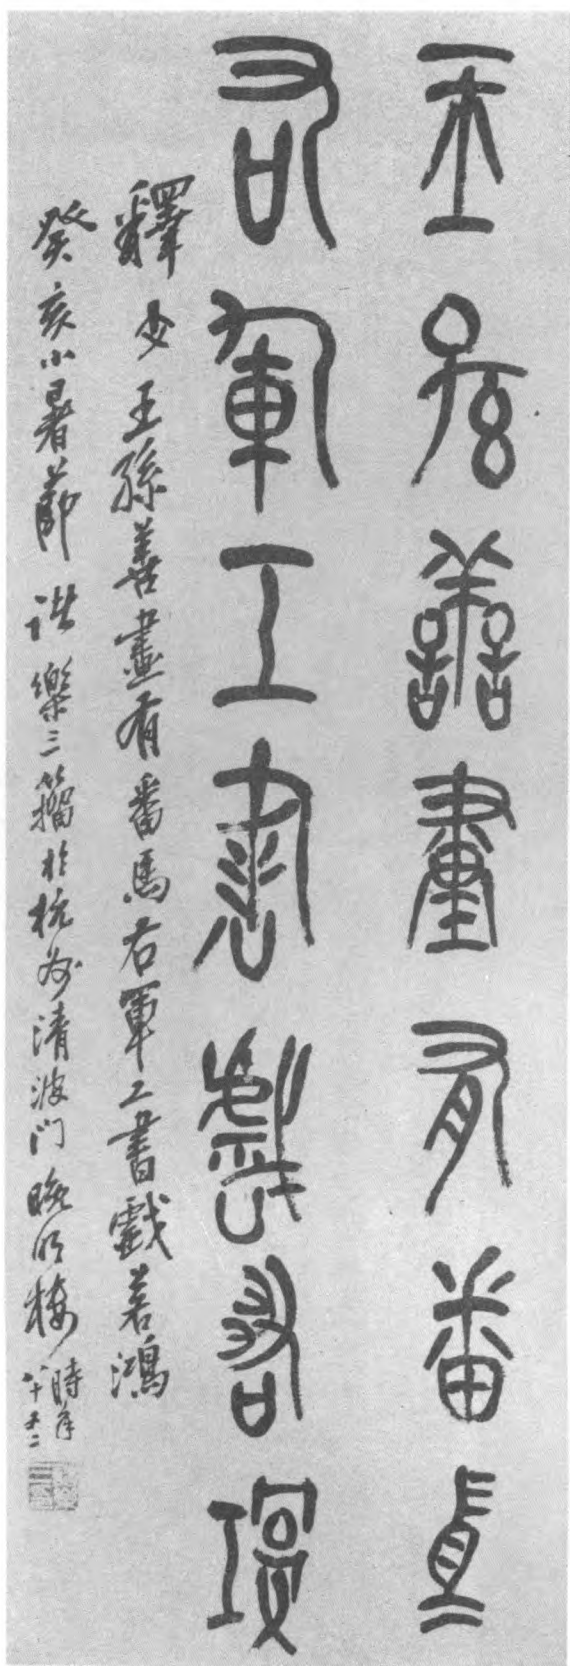 王孫善畫有番馬
右軍工書戲若鴻
釋文王孫善畫有番馬右軍工書戲若鴻
癸亥小暑節諸樂三籀於杭州清波門晚明樓
時年
八十又二